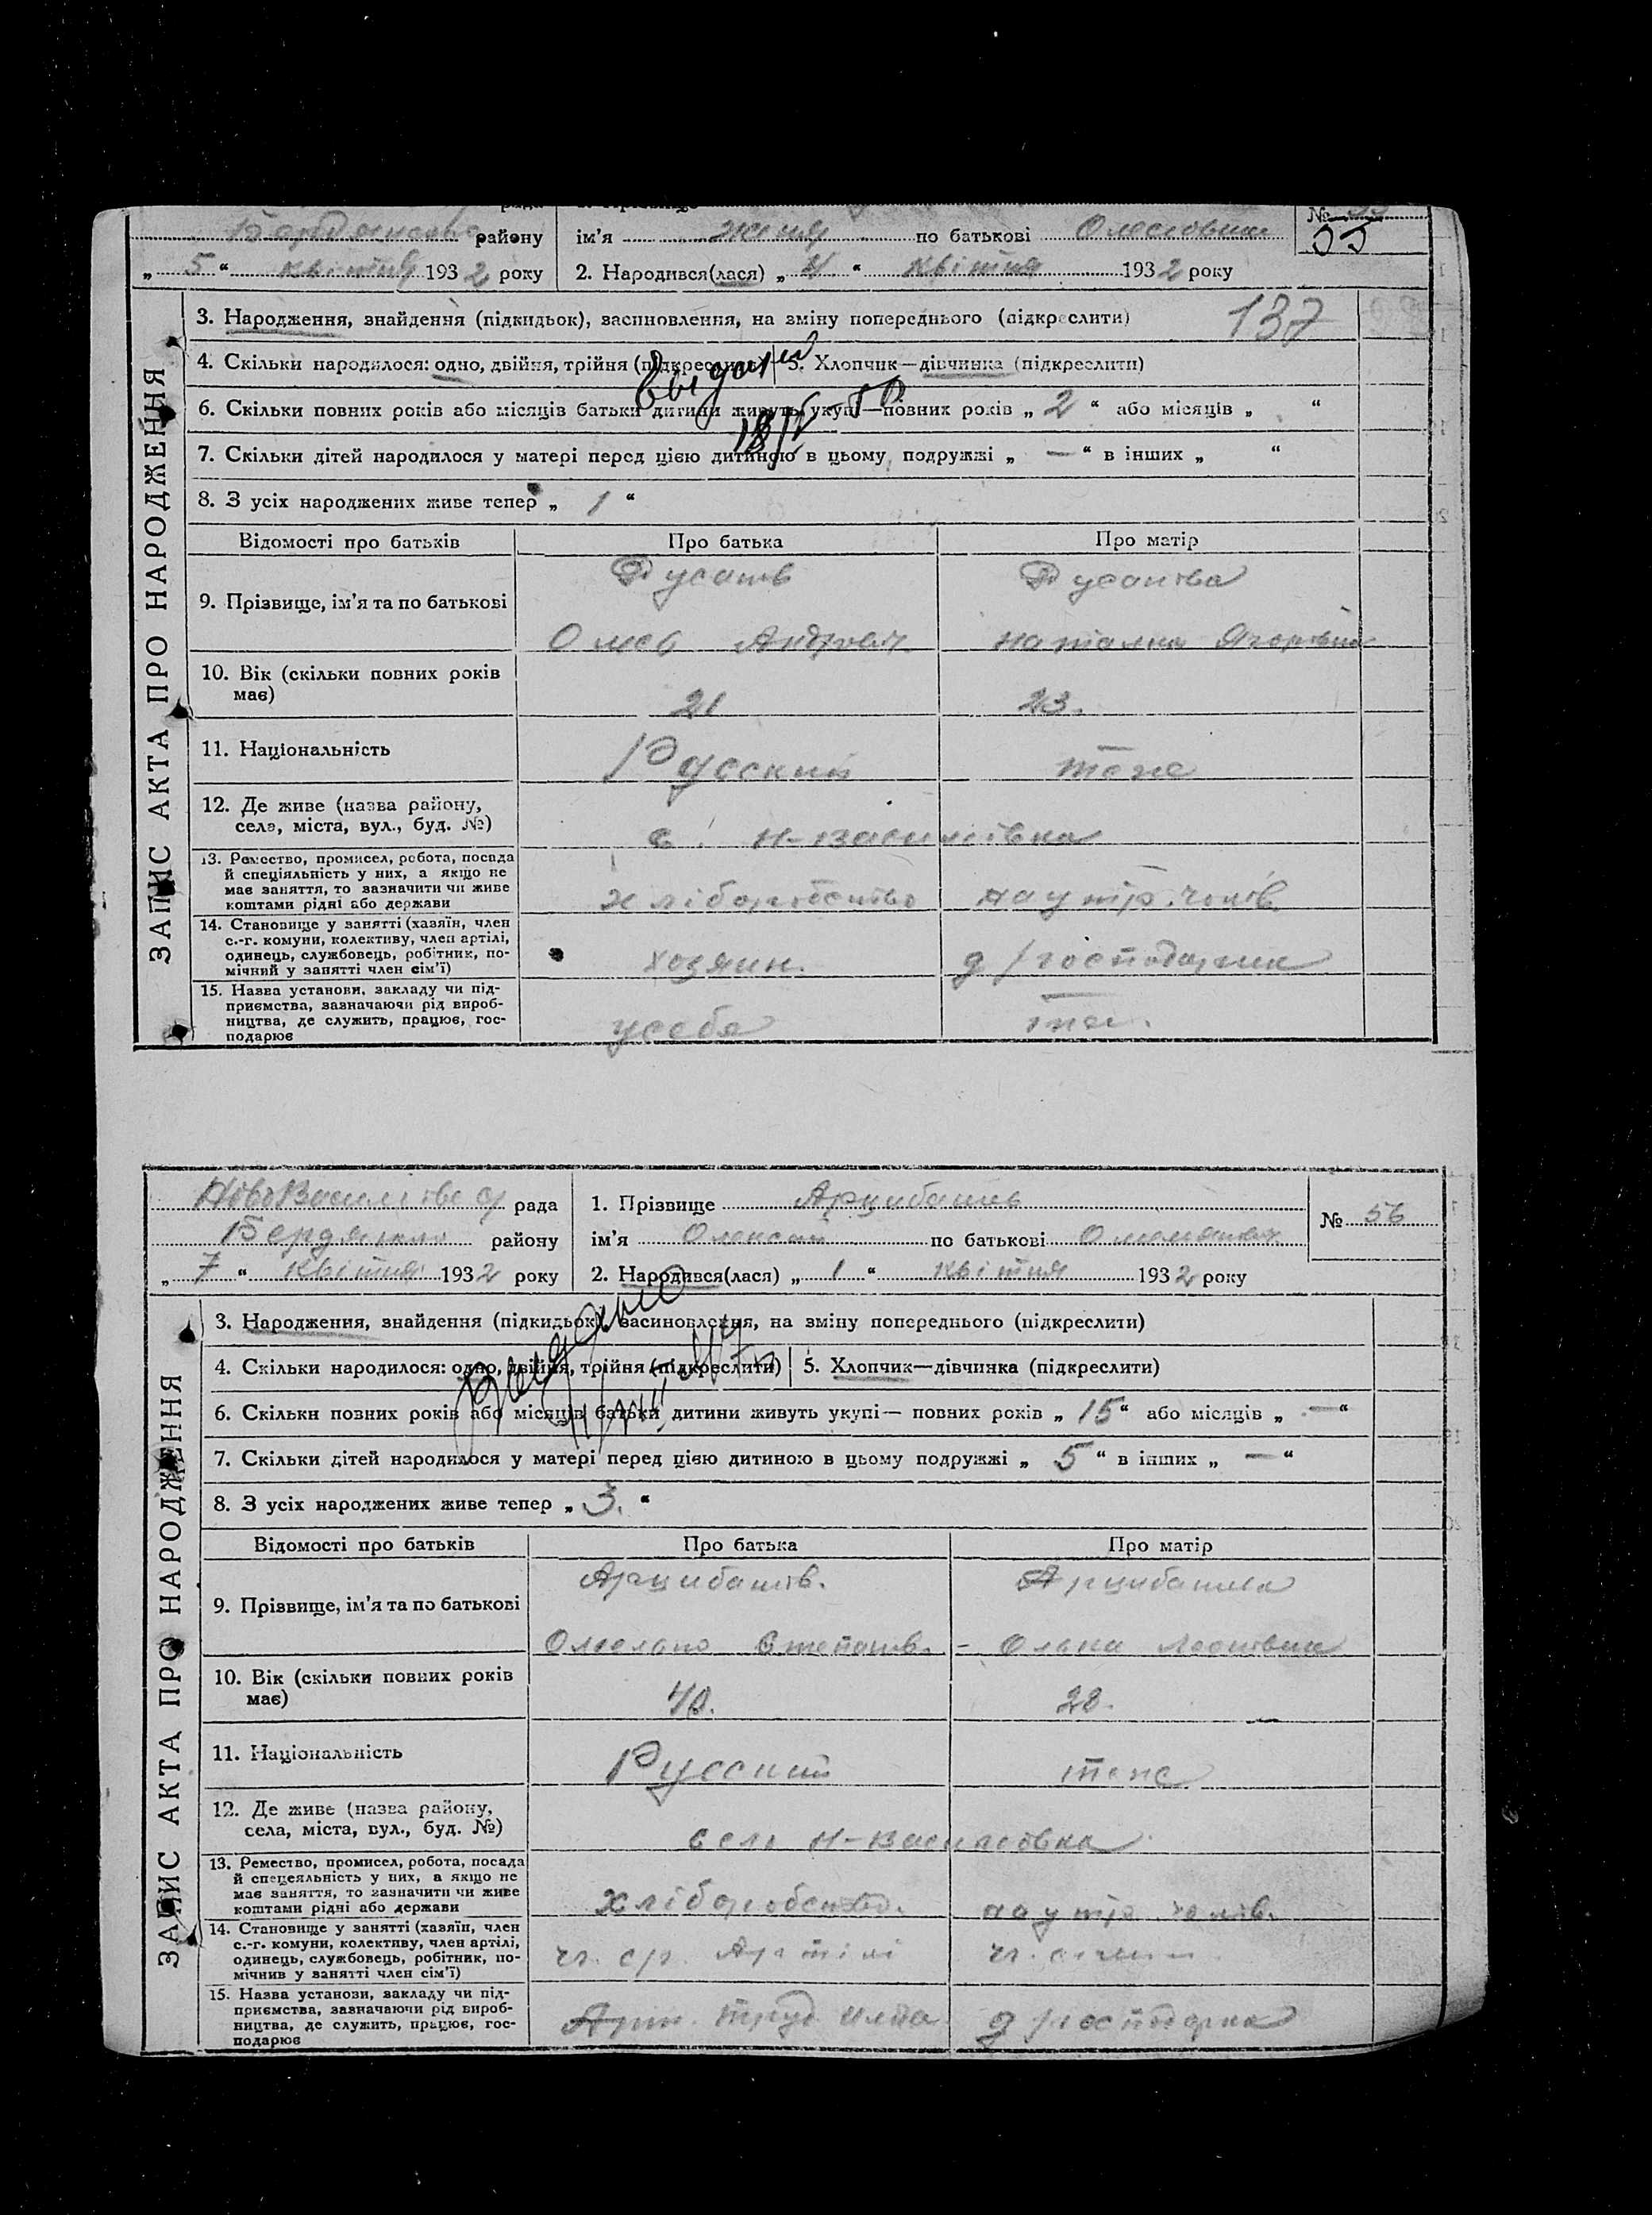 Бердянського району
ім'я Женя по батькові
№
55
„ 5 “ квітня 1932 року
2. Народився(лася) „ 4 “ квітня 1932 року
ЗАПИС АКТА ПРО НАРОДЖЕННЯ
3. Народження, знайдення (підкидьок), засиновлення, на зміну попереднього (підкреслити)
137
4. Скільки народилося: одно, двійня, трійня (підкреслити)
5. Хлопчик—дівчинка (підкреслити)
6. Скільки повних років або місяців батьки дитини живуть укупі—повних років „ 2 “ або місяців „ “
7. Скільки дітей народилося у матері перед цією дитиною в цьому подружжі „ — “ в інших „ “
8. З усіх народжених живе тепер „ 1 “
Відомості про батьків
Про батька
Про матір
9. Прізвище, ім'я та по батькові
Наталка
10. Вік (скільки повних років має)
21
23.
11. Національність
Русский
тоже
12. Де живе (назва району, села, міста, вул., буд. №)
с. Н-Василівка
13. Ремество, промисел, робота, посада
й спеціяльність у них, а якщо не
має заняття, то зазначити чи живе
коштами рідні або держави
хліборобство
на утр. чолів.
14. Становище у занятті (хазяїн, член
с.-г. комуни, колективу, член артілі,
одинець, службовець, робітник, по-
мічний у занятті член сім'ї)
хозяин.
15. Назва установи, закладу чи під-
приємства, зазначаючи рід вироб-
ництва, де служить, працює, гос-
подарює
у себе
рада
Бердянського району
„ 7 “ квітня 1932 року
1. Прізвище Арцибашів
ім'я Олексій по батькові
2. Народився(лася) „ 1 “ квітня 1932 року
№ 56
ЗАПИС АКТА ПРО НАРОДЖЕННЯ
3. Народження, знайдення (підкидьок), засиновлення, на зміну попереднього (підкреслити)
4. Скільки народилося: одно, двійня, трійня (підкреслити)
5. Хлопчик—дівчинка (підкреслити)
6. Скільки повних років або місяців батьки дитини живуть укупі— повних років „ 15 “ або місяців „ — “
7. Скільки дітей народилося у матері перед цією дитиною в цьому подружжі „ 5 “ в інших „ — “
8. З усіх народжених живе тепер „ 3. “
Відомості про батьків
Про батька
Про матір
9. Прізвище, ім'я та по батькові
Арцибашів.
Арцибашева
Степанів.
10. Вік (скільки повних років має)
28.
11. Національність
Русский
тоже
12. Де живе (назва району, села, міста, вул., буд. №)
село Н-Василівка
13. Ремество, промисел, робота, посада
й спецеяльність у них, а якщо не
має заняття, то зазначити чи живе
коштами рідні або держави
Хліборобство.
на утр. чолів.
14. Становище у занятті (хазяїн, член
с.-г. комуни, колективу, член артілі,
одинець, службовець, робітник, по-
мічнив у занятті член сім'ї)
Артілі
15. Назва установи, закладу чи під-
приємства, зазначаючи рід вироб-
ництва, де служить, працює, гос-
подарює
д/господарка